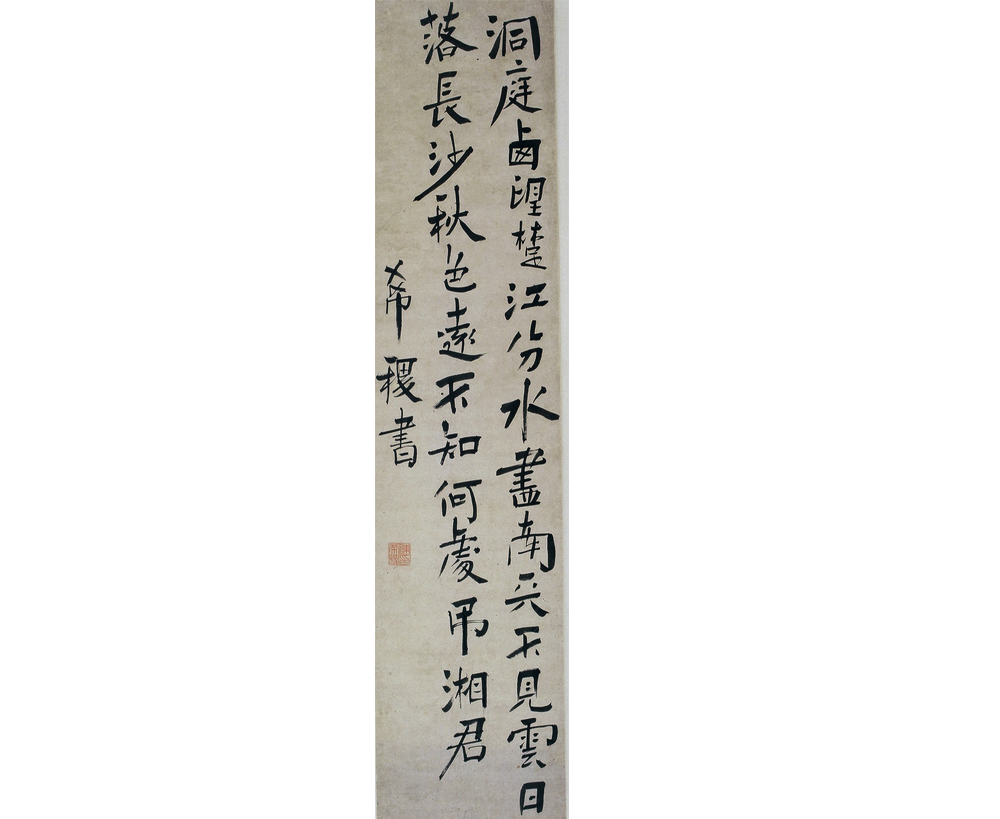 洞庭西望楚江分水盡南天不見雲日
落長沙秋色遠不知何處吊湘君
希稷書